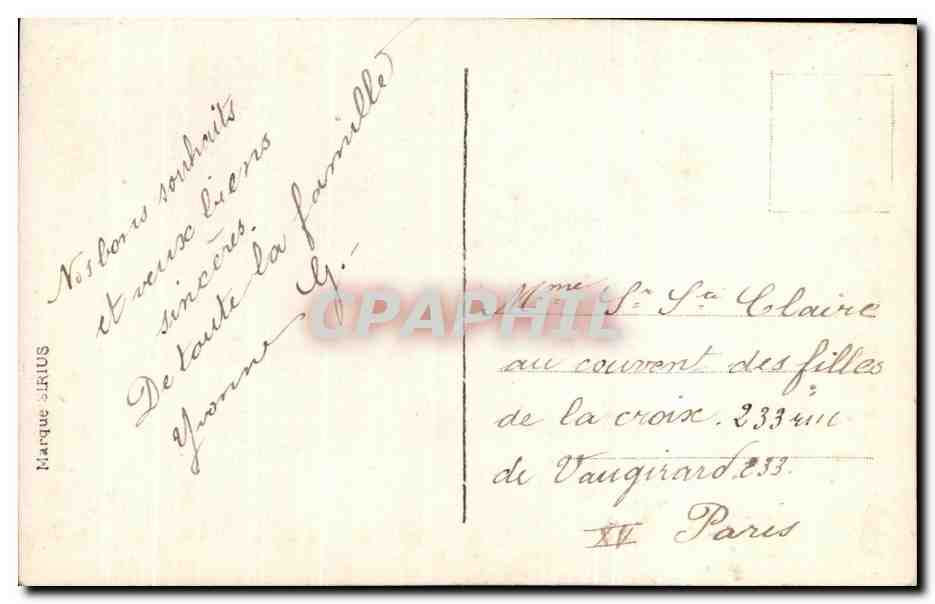 Nos bons souhaits
et vœux biens
sincères.
De toute la famille
Yvonne G.-
Marque SIRIUS
CPAPHIL
Mme Sr Ste Claire
au couvent des filles
de la croix. 233 rue
de Vaugirard. 233.
XV Paris